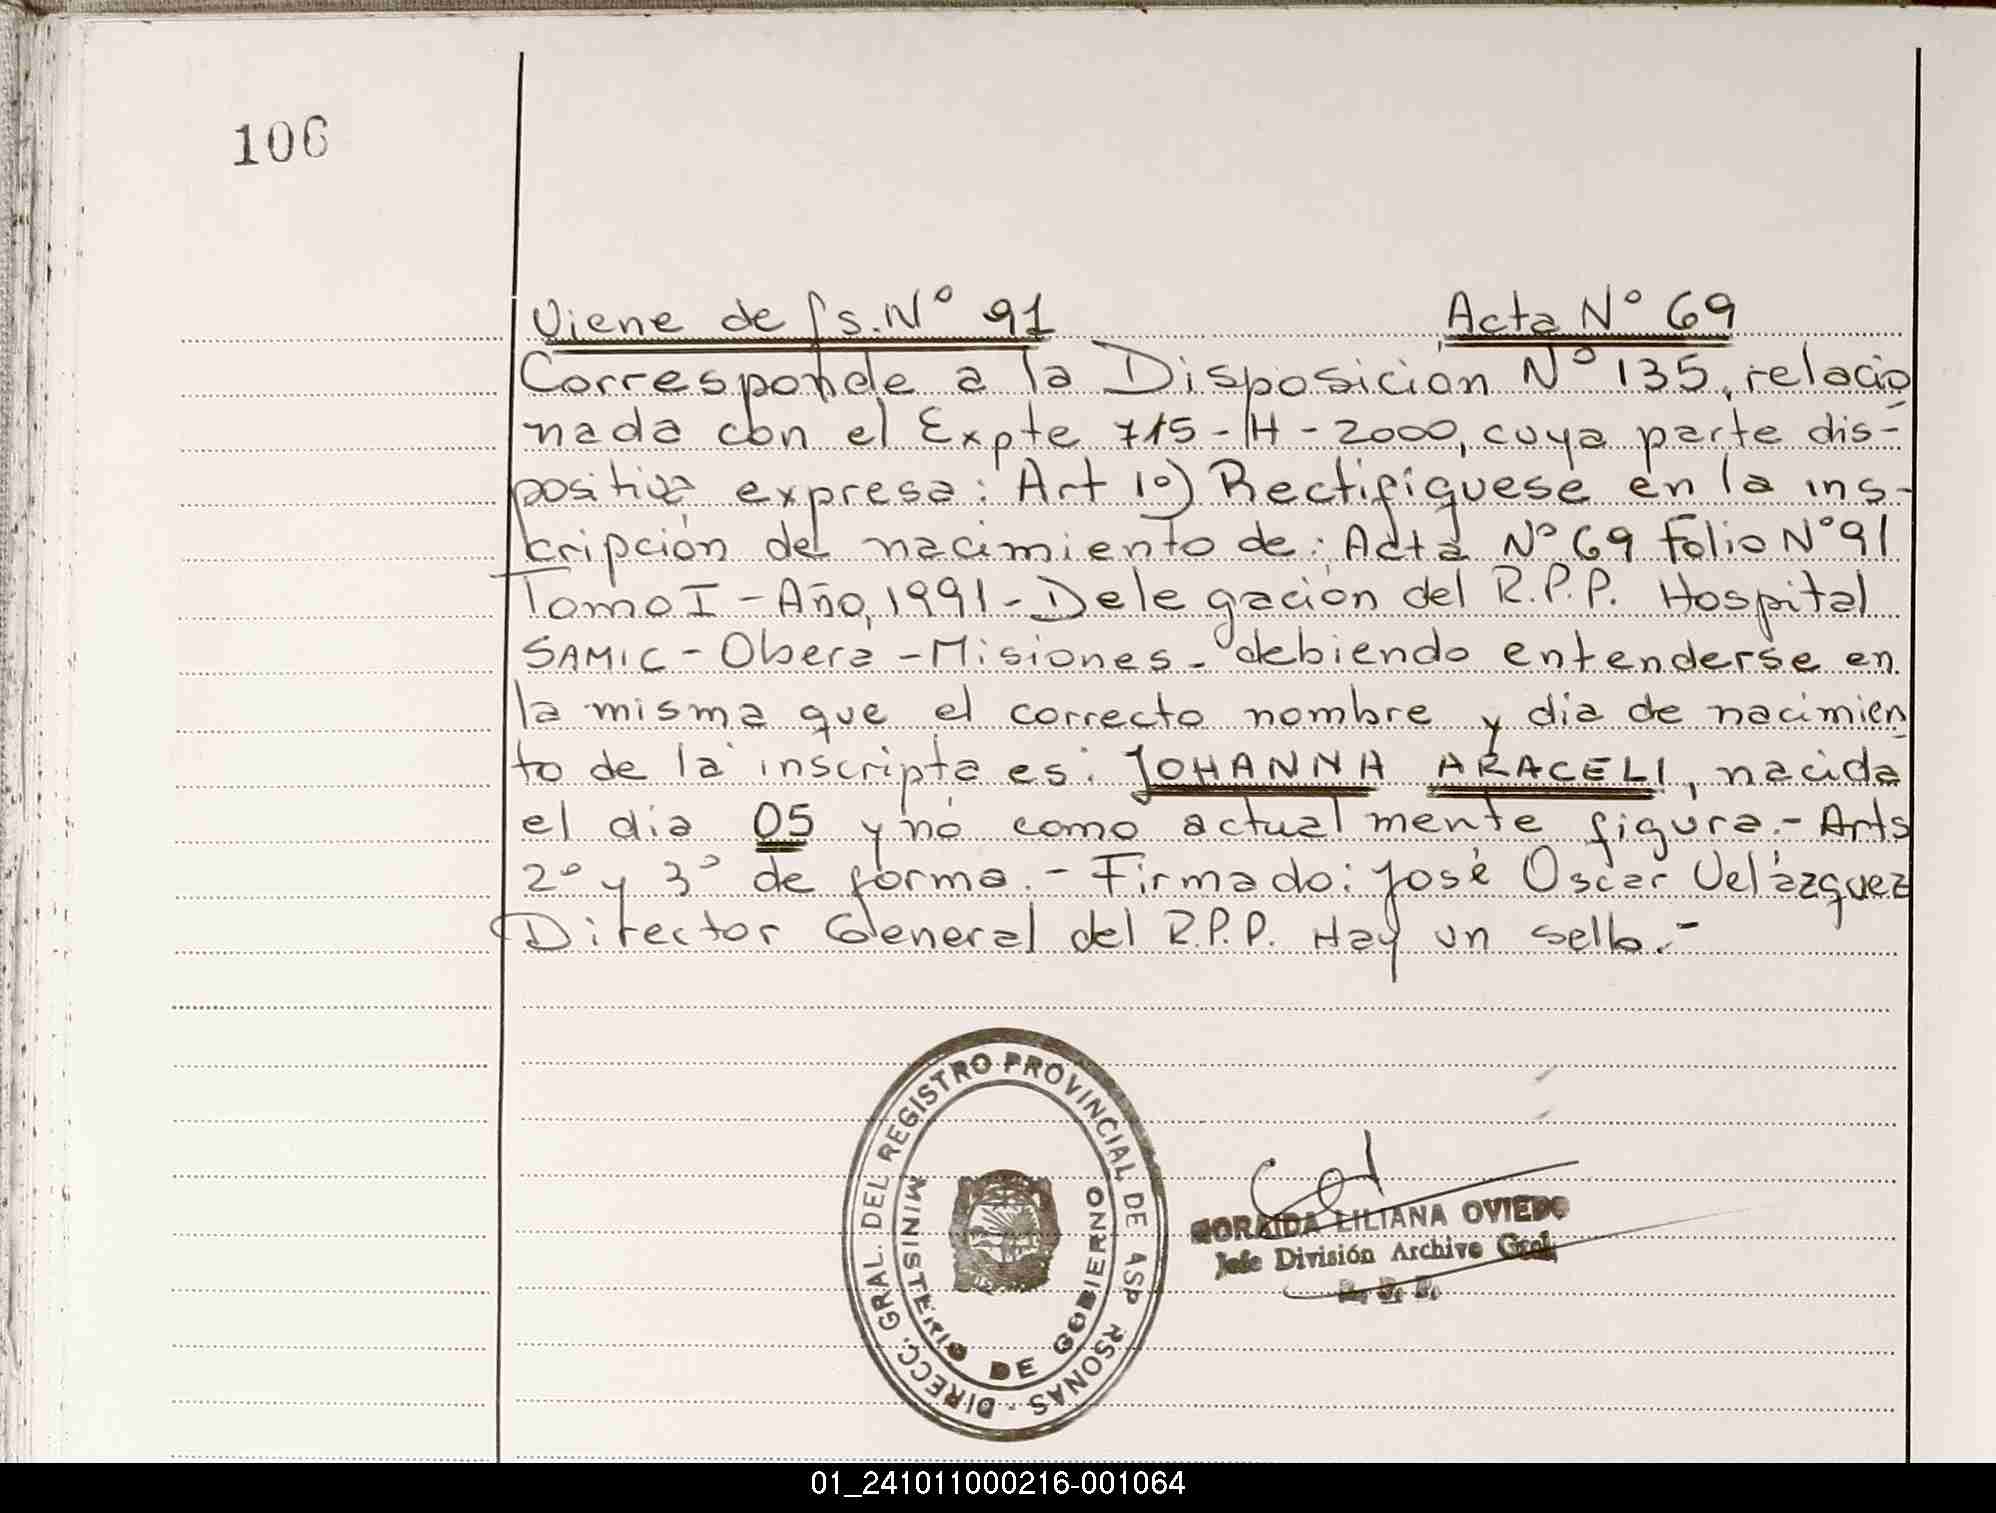 106
Viene de fs. Nº 91 Acta Nº 69
Corresponde a la Disposición Nº 135, relacio
nada con el Expte 715-H-2000, cuya parte dis-
positiva expresa: Art 1º) Rectifíquese en la ins-
cripción de nacimiento de: Acta Nº 69 Folio Nº 91
Tomo I - Año, 1991 - Delegación del R.P.P. Hospital
SAMIC - Oberá - Misiones - debiendo entenderse en
la misma que el correcto nombre y día de nacimien
to de la inscripta es: JOHANNA ARACELI, nacida
el día 05 y no como actualmente figura.- Arts
2º y 3º de forma.- Firmado: José Oscar Velázquez
Director General del R.P.P. Hay un sello.-
DIRECC. GRAL. DEL REGISTRO PROVINCIAL DE
RSONAS
MINISTERIO DE GOBIERNO
LILIANA OVIEDO
Jefe División Archivo Gral.
R. P. P.
01_241011000216-001064